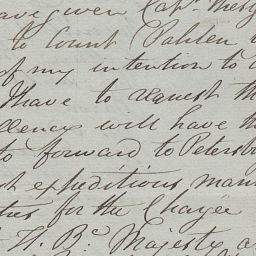 have given Capt.
to Count Pahlen
of my intention to
I have to request th
llency will have th
to forward to Petersbu
st expeditious mann
ties for the Chargé
H. B.c Majesty a